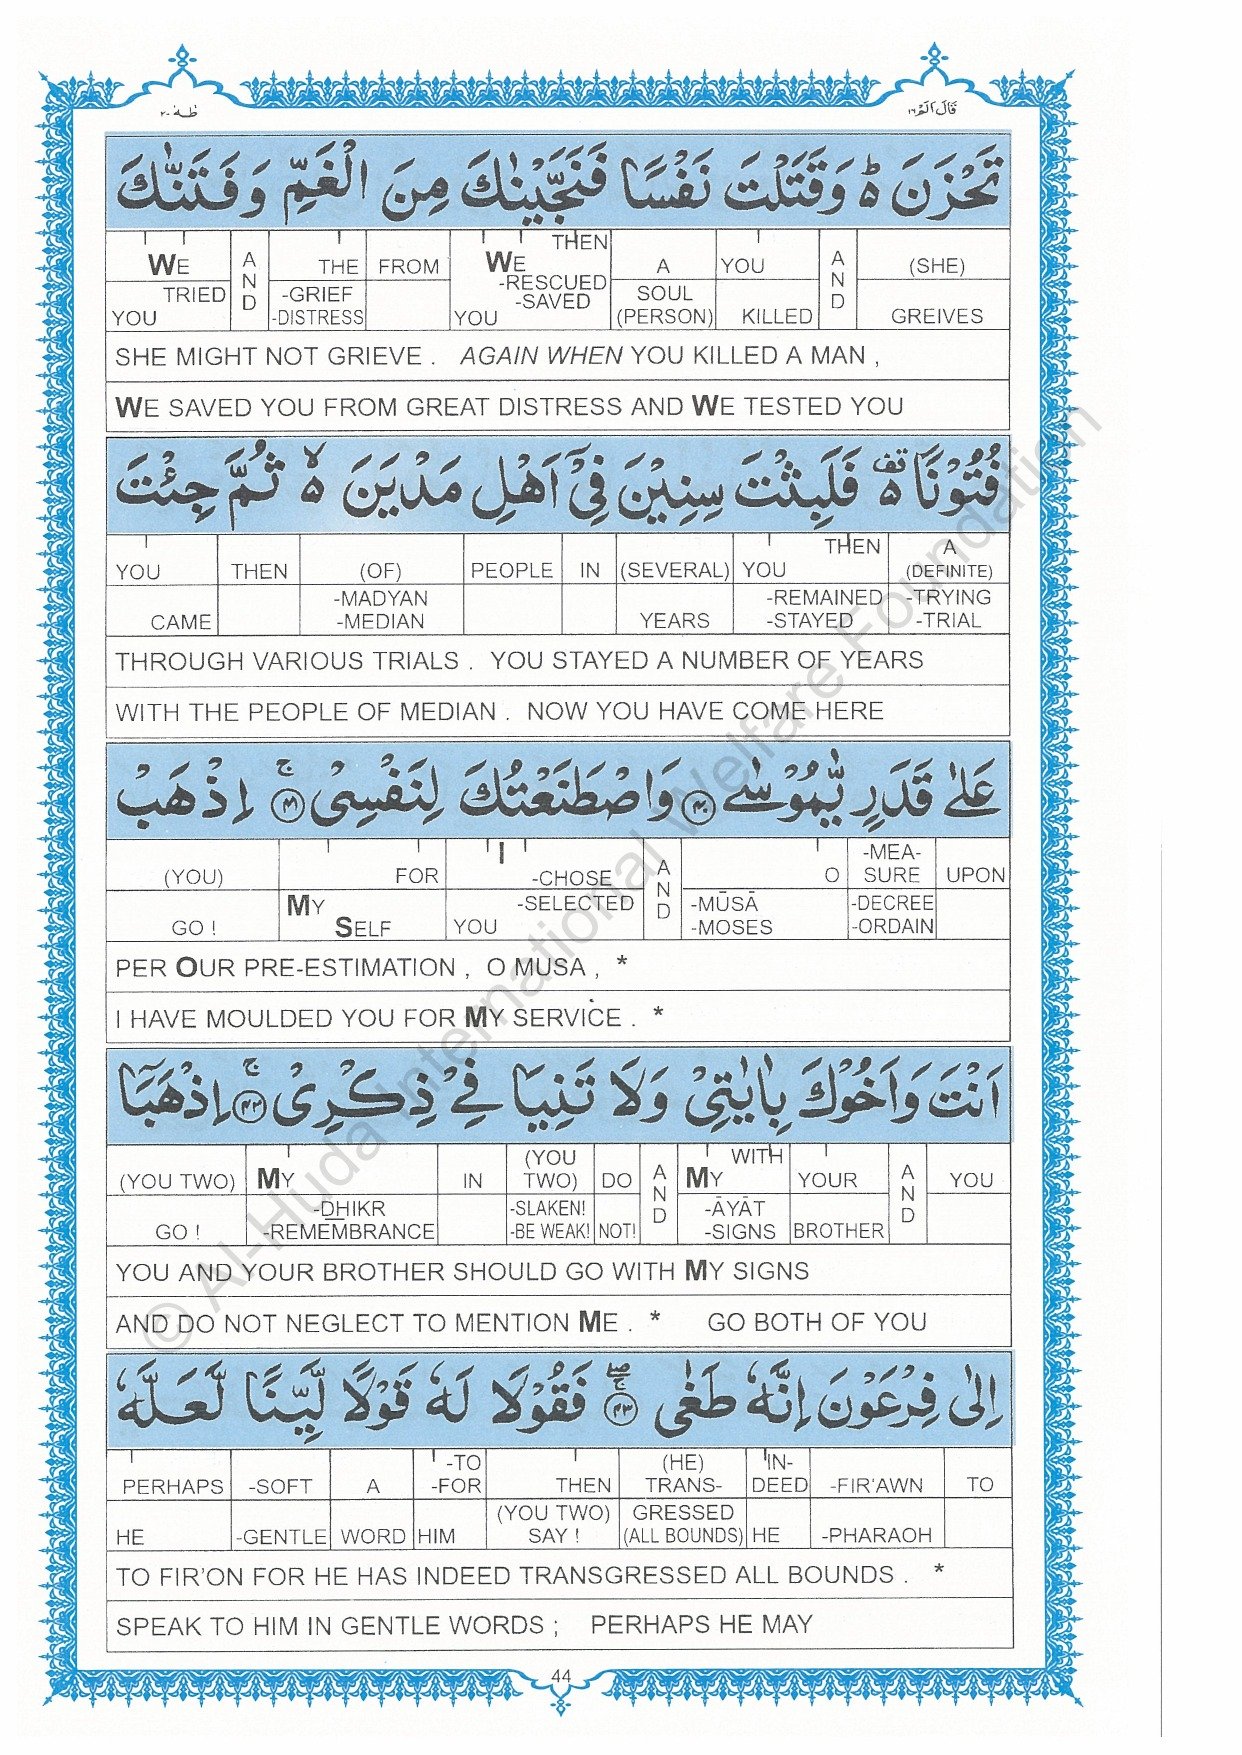 طٰهٰ ٢٠
قَالَ اَلَمْ ١٦
تَحْزَنَ ۬ؕ وَقَتَلْتَ نَفْسًا فَنَجَّيْنٰكَ مِنَ الْغَمِّ وَفَتَنّٰكَ
WE TRIED YOU | AND | THE -GRIEF -DISTRESS | FROM | THEN WE -RESCUED -SAVED YOU | A SOUL (PERSON) | YOU KILLED | AND | (SHE) GREIVES
SHE MIGHT NOT GRIEVE . AGAIN WHEN YOU KILLED A MAN ,
WE SAVED YOU FROM GREAT DISTRESS AND WE TESTED YOU
فُتُوْنًا ۬۫ فَلَبِثْتَ سِنِيْنَ فِيْٓ اَهْلِ مَدْيَنَ ۬ۙ ثُمَّ جِئْتَ
YOU CAME | THEN | (OF) -MADYAN -MEDIAN | PEOPLE | IN | (SEVERAL) YEARS | THEN YOU -REMAINED -STAYED | A (DEFINITE) -TRYING -TRIAL
THROUGH VARIOUS TRIALS . YOU STAYED A NUMBER OF YEARS
WITH THE PEOPLE OF MEDIAN . NOW YOU HAVE COME HERE
عَلٰى قَدَرٍ يّٰمُوْسٰى ﴿٤٠﴾ وَاصْطَنَعْتُكَ لِنَفْسِيْ ۚ ﴿٤١﴾ اِذْهَبْ
(YOU) GO ! | FOR MY SELF | I -CHOSE -SELECTED YOU | AND | O -MŪSĀ -MOSES | -MEA- SURE -DECREE -ORDAIN | UPON
PER OUR PRE-ESTIMATION , O MUSA , *
I HAVE MOULDED YOU FOR MY SERVICE . *
اَنْتَ وَاَخُوْكَ بِاٰيٰتِيْ وَلَا تَنِيَا فِيْ ذِكْرِيْ ۚ ﴿٤٢﴾ اِذْهَبَآ
(YOU TWO) GO ! | MY -DHIKR -REMEMBRANCE | IN | (YOU TWO) -SLAKEN! -BE WEAK! | DO NOT! | AND | WITH MY -ĀYĀT -SIGNS | YOUR BROTHER | AND | YOU
YOU AND YOUR BROTHER SHOULD GO WITH MY SIGNS
AND DO NOT NEGLECT TO MENTION ME . * GO BOTH OF YOU
اِلٰى فِرْعَوْنَ اِنَّهٗ طَغٰى ۚۖ ﴿٤٣﴾ فَقُوْلَا لَهٗ قَوْلًا لَّيِّنًا لَّعَلَّهٗ
PERHAPS HE | -SOFT -GENTLE | A WORD | -TO -FOR HIM | THEN (YOU TWO) SAY ! | (HE) TRANS- GRESSED (ALL BOUNDS) | IN- DEED HE | -FIR'AWN -PHARAOH | TO
TO FIR'ON FOR HE HAS INDEED TRANSGRESSED ALL BOUNDS . *
SPEAK TO HIM IN GENTLE WORDS ; PERHAPS HE MAY
44
© Al-Huda International Welfare Foundation